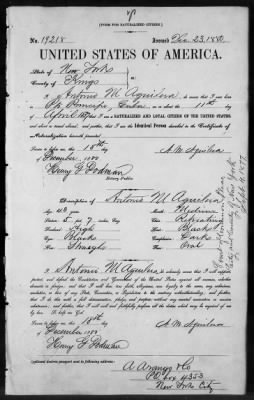 [FORM FOR NATURALIZED CITIZEN.]
No. 19218 Issued Dec. 23, 1880
UNITED STATES OF AMERICA.
State of New York
County of Kings
I, Antonio M. Aguilera, do swear that I was born in
Cuba, on or about the 11th day of
April; that I am a NATURALIZED AND LOYAL CITIZEN OF THE UNITED STATES,
and about to travel abroad; and further, that I am the Identical Person described in the Certificate of
Naturalization herewith presented.
Sworn to before me this 18th day
of December 1880 A. M. Aguilera
Henry G. Dodman
Notary Public.
Description of Antonio M. Aguilera
Age: Mouth: Medium
Stature: 5 feet 7 inches Chin: Retreating
Forehead: High Hair: Black
Eyes: Black Complexion: Dark
Nose: Straight Face: Oval
I, Antonio M. Aguilera, do solemnly swear that I will support, protect, and defend
the Constitution and Government of the United States against all enemies, whether domestic
or foreign; and that I will bear true faith, allegiance, and loyalty to the same, any ordinance,
resolution, or law of any State, Convention, or Legislature to the contrary notwithstanding; and further,
that I do this with a full determination, pledge, and purpose, without any mental reservation or
evasion whatsoever; and further, that I will well and faithfully perform all the duties which may be required of me
by law. So help me God.
Sworn to before me this 18th day
of December 1880 A. M. Aguilera
Henry G. Dodman
A Arango & Co
P.O. box 4353
New York City